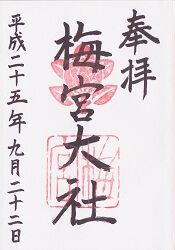 奉拝
梅宮大社
平成二十五年九月二十二日